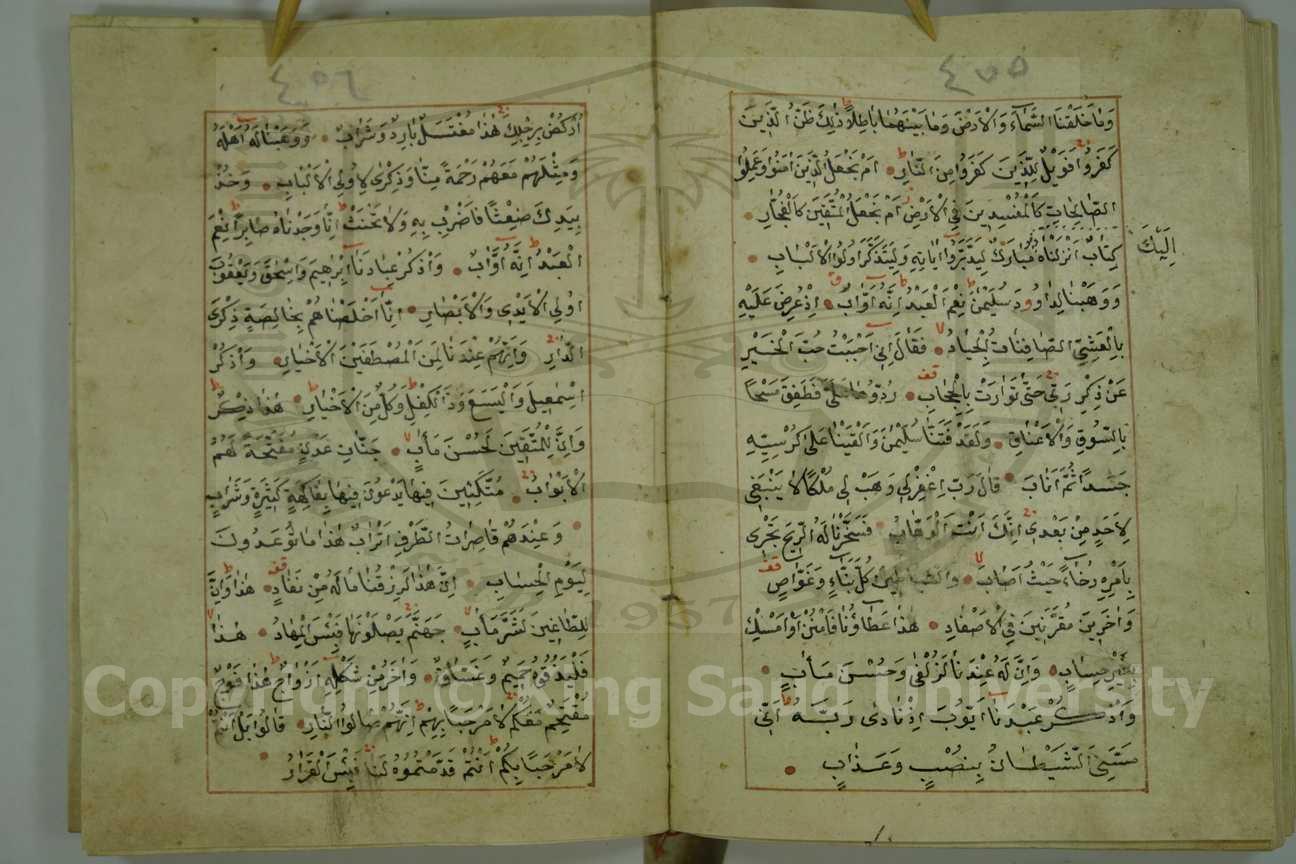 ٤٥٥
وَمَا خَلَقْنَا السَّمَاءَ وَالْاَرْضَ وَمَا بَيْنَهُمَا بَاطِلًا ذٰلِكَ ظَنُّ الَّذِينَ
كَفَرُوا فَوَيْلٌ لِلَّذِينَ كَفَرُوا مِنَ النَّارِ اَمْ نَجْعَلُ الَّذِينَ اٰمَنُوا وَعَمِلُوا
الصَّالِحَاتِ كَالْمُفْسِدِينَ فِي الْاَرْضِ اَمْ نَجْعَلُ الْمُتَّقِينَ كَالْفُجَّارِ
كِتَابٌ اَنْزَلْنَاهُ مُبَارَكٌ لِيَدَّبَّرُوا اٰيَاتِهِ وَلِيَتَذَكَّرَ اُولُوا الْاَلْبَابِ
اِلَيْكَ
وَوَهَبْنَا لِدَاوُودَ سُلَيْمٰنَ نِعْمَ الْعَبْدُ اِنَّهُ اَوَّابٌ اِذْ عُرِضَ عَلَيْهِ
بِالْعَشِيِّ الصَّافِنَاتُ الْجِيَادُ فَقَالَ اِنِّي اَحْبَبْتُ حُبَّ الْخَيْرِ
عَنْ ذِكْرِ رَبِّي حَتّٰى تَوَارَتْ بِالْحِجَابِ رُدُّوهَا عَلَيَّ فَطَفِقَ مَسْحًا
بِالسُّوقِ وَالْاَعْنَاقِ وَلَقَدْ فَتَنَّا سُلَيْمٰنَ وَاَلْقَيْنَا عَلٰى كُرْسِيِّهِ
جَسَدًا ثُمَّ اَنَابَ قَالَ رَبِّ اغْفِرْ لِي وَهَبْ لِي مُلْكًا لَا يَنْبَغِي
لِاَحَدٍ مِنْ بَعْدِي اِنَّكَ اَنْتَ الْوَهَّابُ فَسَخَّرْنَا لَهُ الرِّيحَ تَجْرِي
بِاَمْرِهِ رُخَاءً حَيْثُ اَصَابَ وَالشَّيَاطِينَ كُلَّ بَنَّاءٍ وَغَوَّاصٍ
وَاٰخَرِينَ مُقَرَّنِينَ فِي الْاَصْفَادِ هٰذَا عَطَاؤُنَا فَامْنُنْ اَوْ اَمْسِكْ
بِغَيْرِ حِسَابٍ وَاِنَّ لَهُ عِنْدَنَا لَزُلْفٰى وَحُسْنَ مَاٰبٍ
وَاذْكُرْ عَبْدَنَا اَيُّوبَ اِذْ نَادٰى رَبَّهُ اَنِّي
مَسَّنِيَ الشَّيْطَانُ بِنُصْبٍ وَعَذَابٍ
٤٥٦
اُرْكُضْ بِرِجْلِكَ هٰذَا مُغْتَسَلٌ بَارِدٌ وَشَرَابٌ وَوَهَبْنَا لَهُ اَهْلَهُ
وَمِثْلَهُمْ مَعَهُمْ رَحْمَةً مِنَّا وَذِكْرٰى لِاُولِي الْاَلْبَابِ وَخُذْ
بِيَدِكَ ضِغْثًا فَاضْرِبْ بِهِ وَلَا تَحْنَثْ اِنَّا وَجَدْنَاهُ صَابِرًا نِعْمَ
الْعَبْدُ اِنَّهُ اَوَّابٌ وَاذْكُرْ عِبَادَنَا اِبْرٰهِيمَ وَاِسْحٰقَ وَيَعْقُوبَ
اُولِي الْاَيْدِي وَالْاَبْصَارِ اِنَّا اَخْلَصْنَاهُمْ بِخَالِصَةٍ ذِكْرَى
الدَّارِ وَاِنَّهُمْ عِنْدَنَا لَمِنَ الْمُصْطَفَيْنَ الْاَخْيَارِ وَاذْكُرْ
اِسْمٰعِيلَ وَالْيَسَعَ وَذَا الْكِفْلِ وَكُلٌّ مِنَ الْاَخْيَارِ هٰذَا ذِكْرٌ
وَاِنَّ لِلْمُتَّقِينَ لَحُسْنَ مَاٰبٍ جَنَّاتِ عَدْنٍ مُفَتَّحَةً لَهُمُ
الْاَبْوَابُ مُتَّكِئِينَ فِيهَا يَدْعُونَ فِيهَا بِفَاكِهَةٍ كَثِيرَةٍ وَشَرَابٍ
وَعِنْدَهُمْ قَاصِرَاتُ الطَّرْفِ اَتْرَابٌ هٰذَا مَا تُوعَدُونَ
لِيَوْمِ الْحِسَابِ اِنَّ هٰذَا لَرِزْقُنَا مَا لَهُ مِنْ نَفَادٍ هٰذَا وَاِنَّ
لِلطَّاغِينَ لَشَرَّ مَاٰبٍ جَهَنَّمَ يَصْلَوْنَهَا فَبِئْسَ الْمِهَادُ هٰذَا
فَلْيَذُوقُوهُ حَمِيمٌ وَغَسَّاقٌ وَاٰخَرُ مِنْ شَكْلِهِ اَزْوَاجٌ هٰذَا فَوْجٌ
مُقْتَحِمٌ مَعَكُمْ لَا مَرْحَبًا بِهِمْ اِنَّهُمْ صَالُوا النَّارِ قَالُوا بَلْ اَنْتُمْ
لَا مَرْحَبًا بِكُمْ اَنْتُمْ قَدَّمْتُمُوهُ لَنَا فَبِئْسَ الْقَرَارُ
1957
Copyright © King Saud University